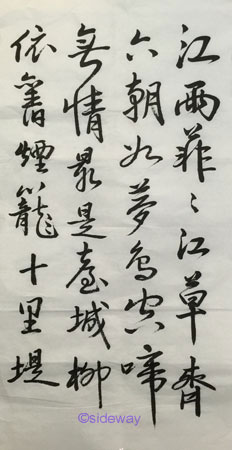 江雨菲〻江草齊
六朝如夢鳥空啼
無情最是臺城柳
依舊煙籠十里堤
©sideway